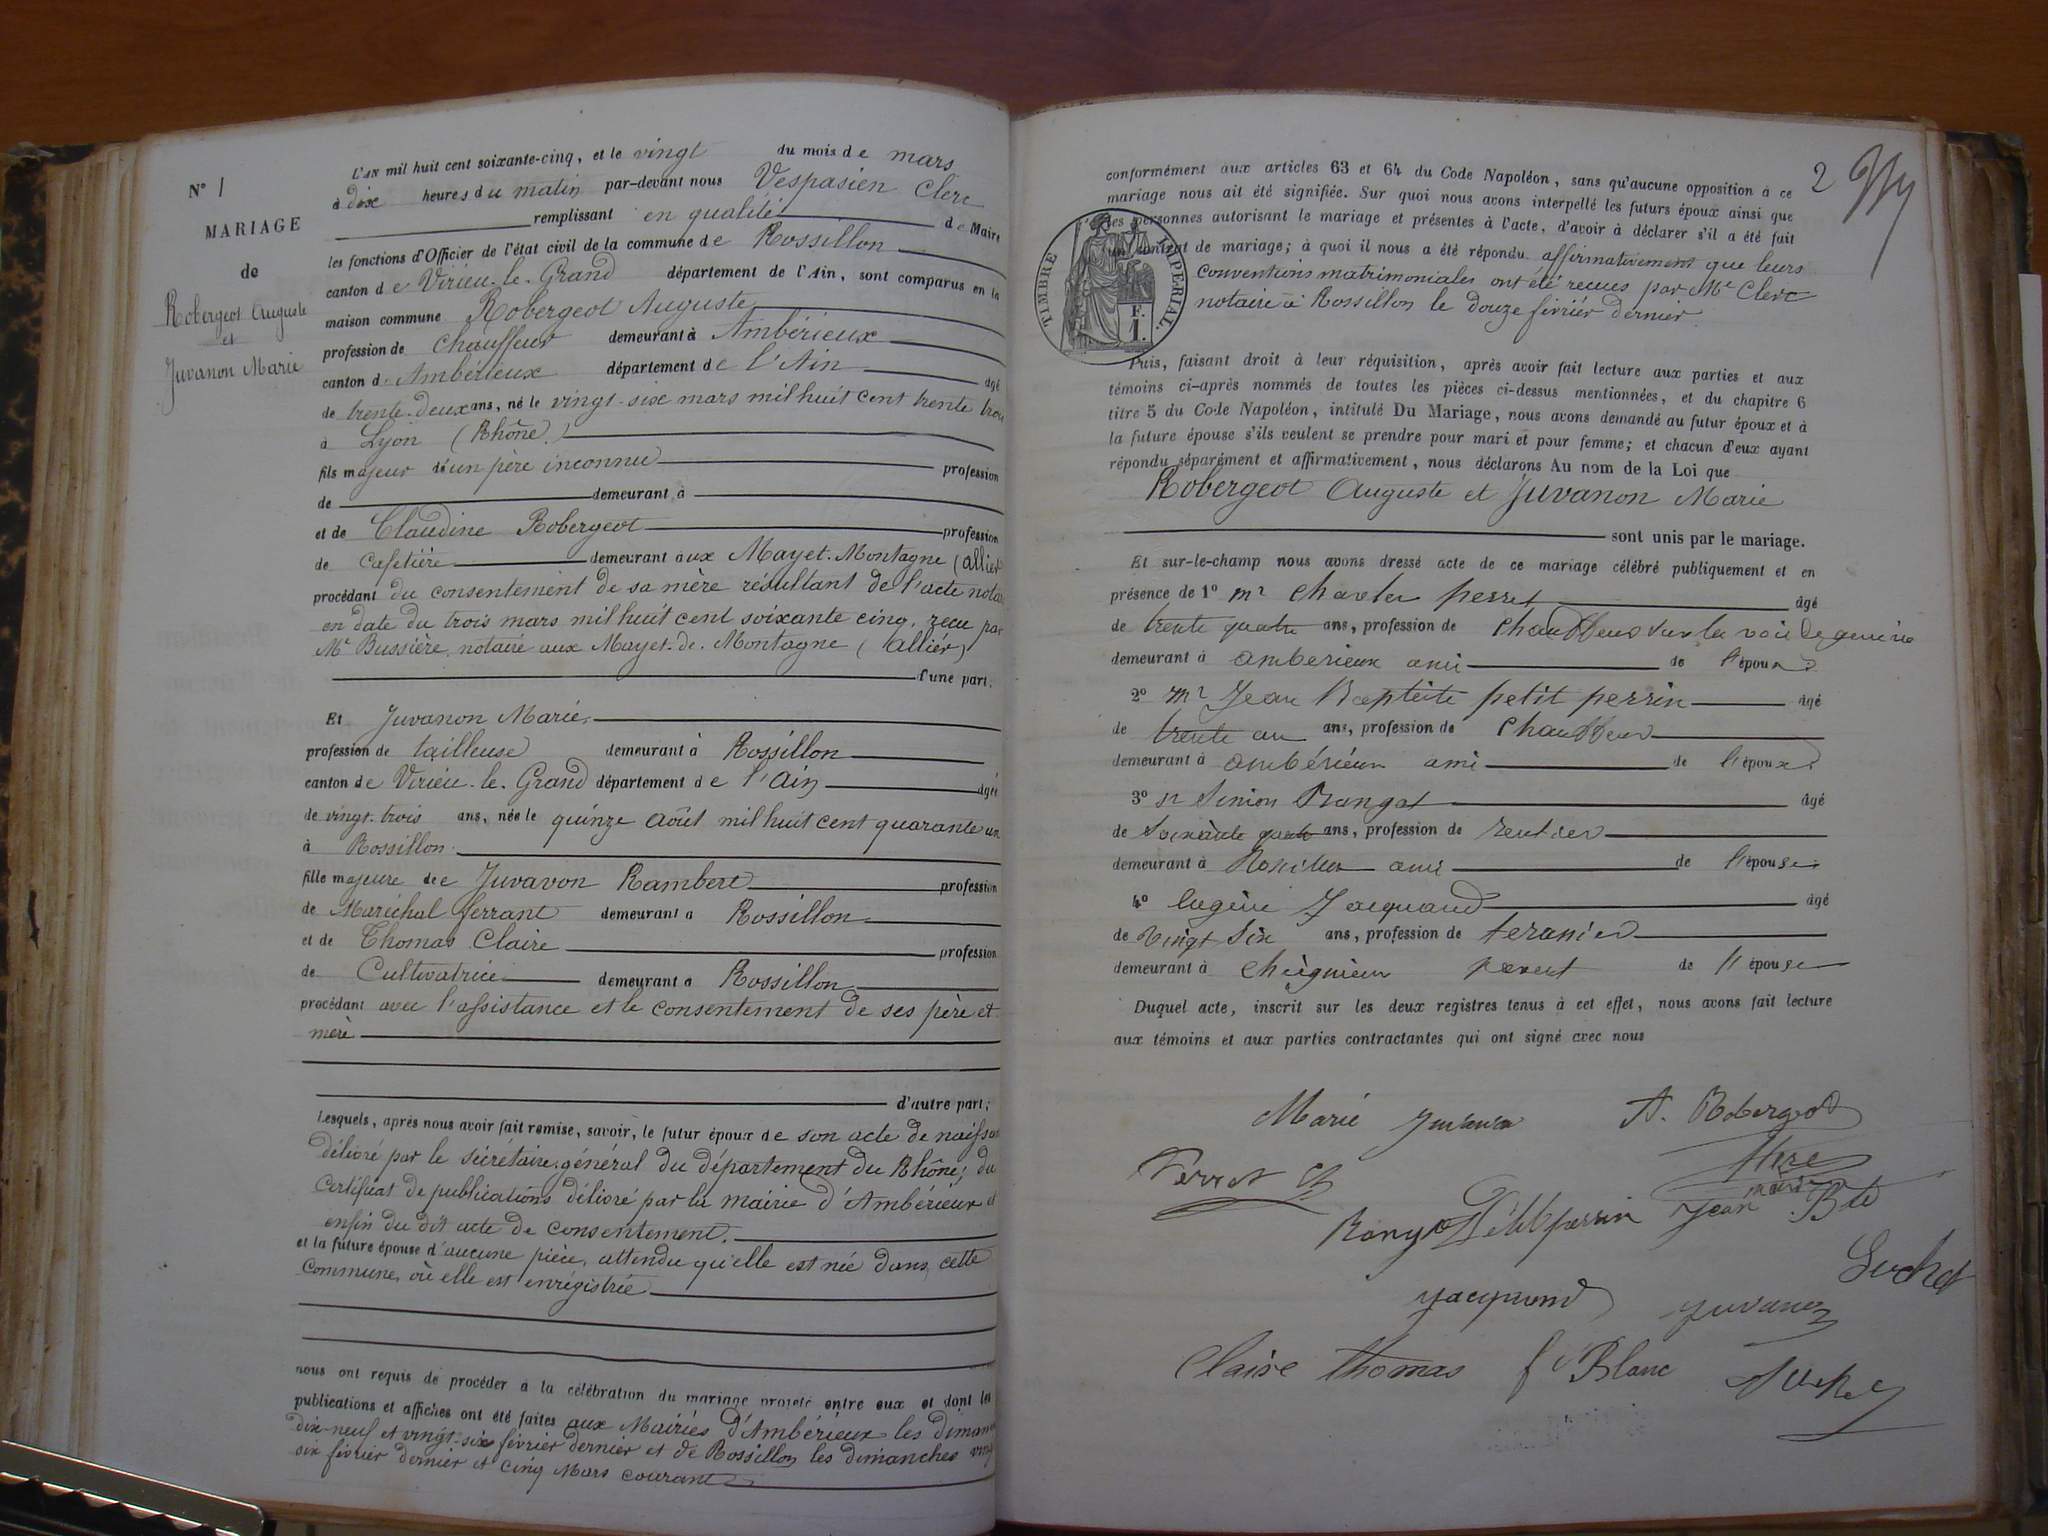 N° 1
MARIAGE
de
Robergeot Auguste
et
Juvanon Marie
L'AN mil huit cent soixante-cinq, et le vingt du mois de mars
à dix heures du matin par-devant nous Vespasien Clerc
remplissant en qualité de Maire
les fonctions d'Officier de l'état civil de la commune de Rossillon
canton de Virieu-le-Grand département de l'Ain, sont comparus en la
maison commune Robergeot Auguste
profession de chauffeur demeurant à Ambérieux
canton d'Ambérieux département de l'Ain âgé
de trente-deux ans, né le vingt-six mars mil huit cent trente trois
à Lyon (Rhône)
fils majeur d'un père inconnu profession
de demeurant à
et de Claudine Robergeot profession
de Cafetière demeurant aux Mayet-Montagne (allier
procédant du consentement de sa mère résultant de l'acte nota
en date du trois mars mil huit cent soixante cinq, reçu par
Me Bussière, notaire aux Mayet-de-Montagne (allier)
d'une part.
Et Juvanon Marie
profession de tailleuse demeurant à Rossillon
canton de Virieu-le-Grand département de l'Ain âgée
de vingt-trois ans, née le quinze Août mil huit cent quarante un
à Rossillon
fille majeure de Juvavon Rambert profession
de Maréchal ferrant demeurant à Rossillon
et de Thomas Claire profession
de Cultivatrice demeurant à Rossillon
procédant avec l'assistance et le consentement de ses père et
mère
d'autre part;
Lesquels, après nous avoir fait remise, savoir, le futur époux de son acte de naissa
délivré par le sécrétaire-général du département du Rhône; du
Certificat de publications délivré par la mairie d'Ambérieux et
enfin du dit acte de Consentement.
et la future épouse d'aucune pièce, attendu qu'elle est née dans cette
Commune, où elle est enrégistrée
nous ont requis de procéder à la célébration du mariage projeté entre eux et dont les
publications et affiches ont été faites aux Mairies d'Ambérieux les diman
dix-neuf et vingt-six février dernier et de Rossillon les dimanches vingt
six février dernier et cinq Mars courant
2
conformément aux articles 63 et 64 du Code Napoléon, sans qu'aucune opposition à ce
mariage nous ait été signifiée. Sur quoi nous avons interpellé les futurs époux ainsi que
les personnes autorisant le mariage et présentes à l'acte, d'avoir à déclarer s'il a été fait
un contrat de mariage; à quoi il nous a été répondu affirmativement que leurs
conventions matrimoniales ont été reçues par Me Clerc
notaire à Rossillon le douze février dernier.
TIMBRE IMPERIAL.
F.
1.
Puis, faisant droit à leur réquisition, après avoir fait lecture aux parties et aux
témoins ci-après nommés de toutes les pièces ci-dessus mentionnées, et du chapitre 6
titre 5 du Code Napoléon, intitulé Du Mariage, nous avons demandé au futur époux et à
la future épouse s'ils veulent se prendre pour mari et pour femme; et chacun d'eux ayant
répondu séparément et affirmativement, nous déclarons Au nom de la Loi que
Robergeot Auguste et Juvanon Marie
sont unis par le mariage.
Et sur-le-champ nous avons dressé acte de ce mariage célébré publiquement et en
présence de 1° mr Charles perret âgé
de trente quatre ans, profession de chauffeur sur la voie de geneive
demeurant à amberieux ami de l'époux
2° mr Jean Baptiste petit perrin âgé
de trente un ans, profession de chauffeur
demeurant à ambérieux ami de l'époux
3° sr Simon Rangot âgé
de soixante quatre ans, profession de rentier
demeurant à Rosillon ami de l'épouse
4° Eugène Jacquand âgé
de vingt six ans, profession de
demeurant à parent de l'épouse
Duquel acte, inscrit sur les deux registres tenus à cet effet, nous avons fait lecture
aux témoins et aux parties contractantes qui ont signé avec nous
Marie Juvanon A. Robergeot
Perret Ch
maire
Petitperrin Jean Bte
Suchet
Jacquand Juvanon
Claire thomas Blanc